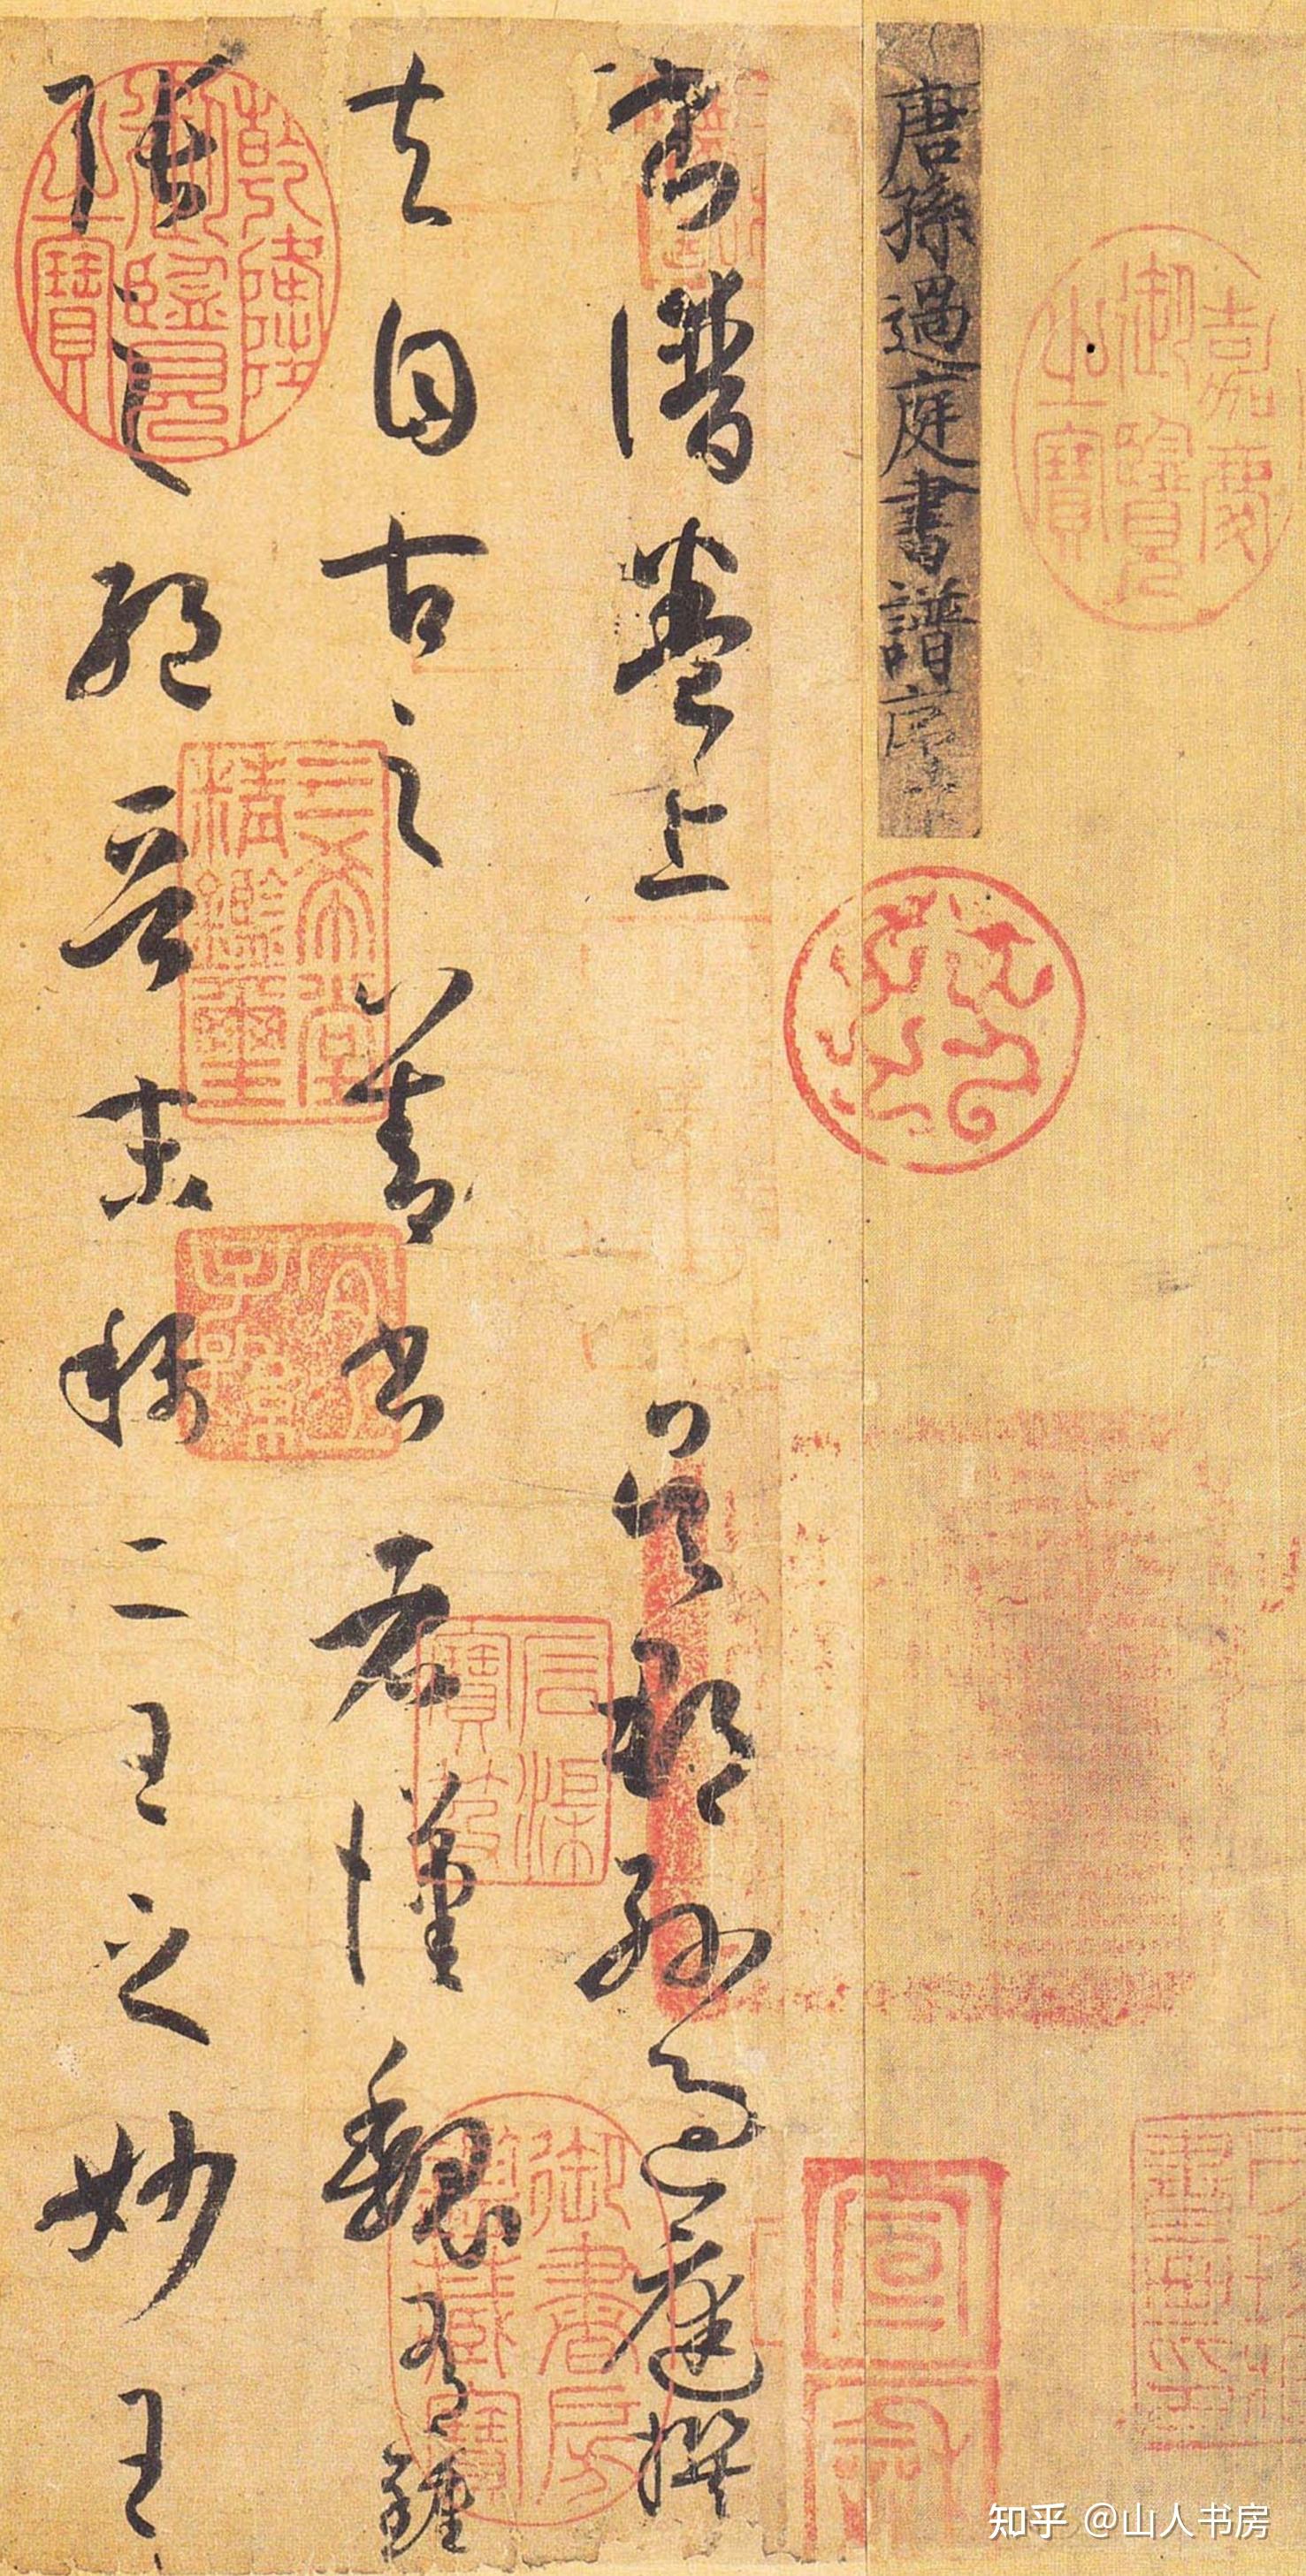 嘉慶御覽之寶
唐孫過庭書譜序
宣和
書譜卷上 吳郡孫過庭撰
夫自古之善書者漢魏有鍾
張之絕晉末稱二王之妙王
石渠寶笈
御書房鑑藏寶
乾隆御覽之寶
三希堂精鑑璽
宜子孫
知乎 @山人书房